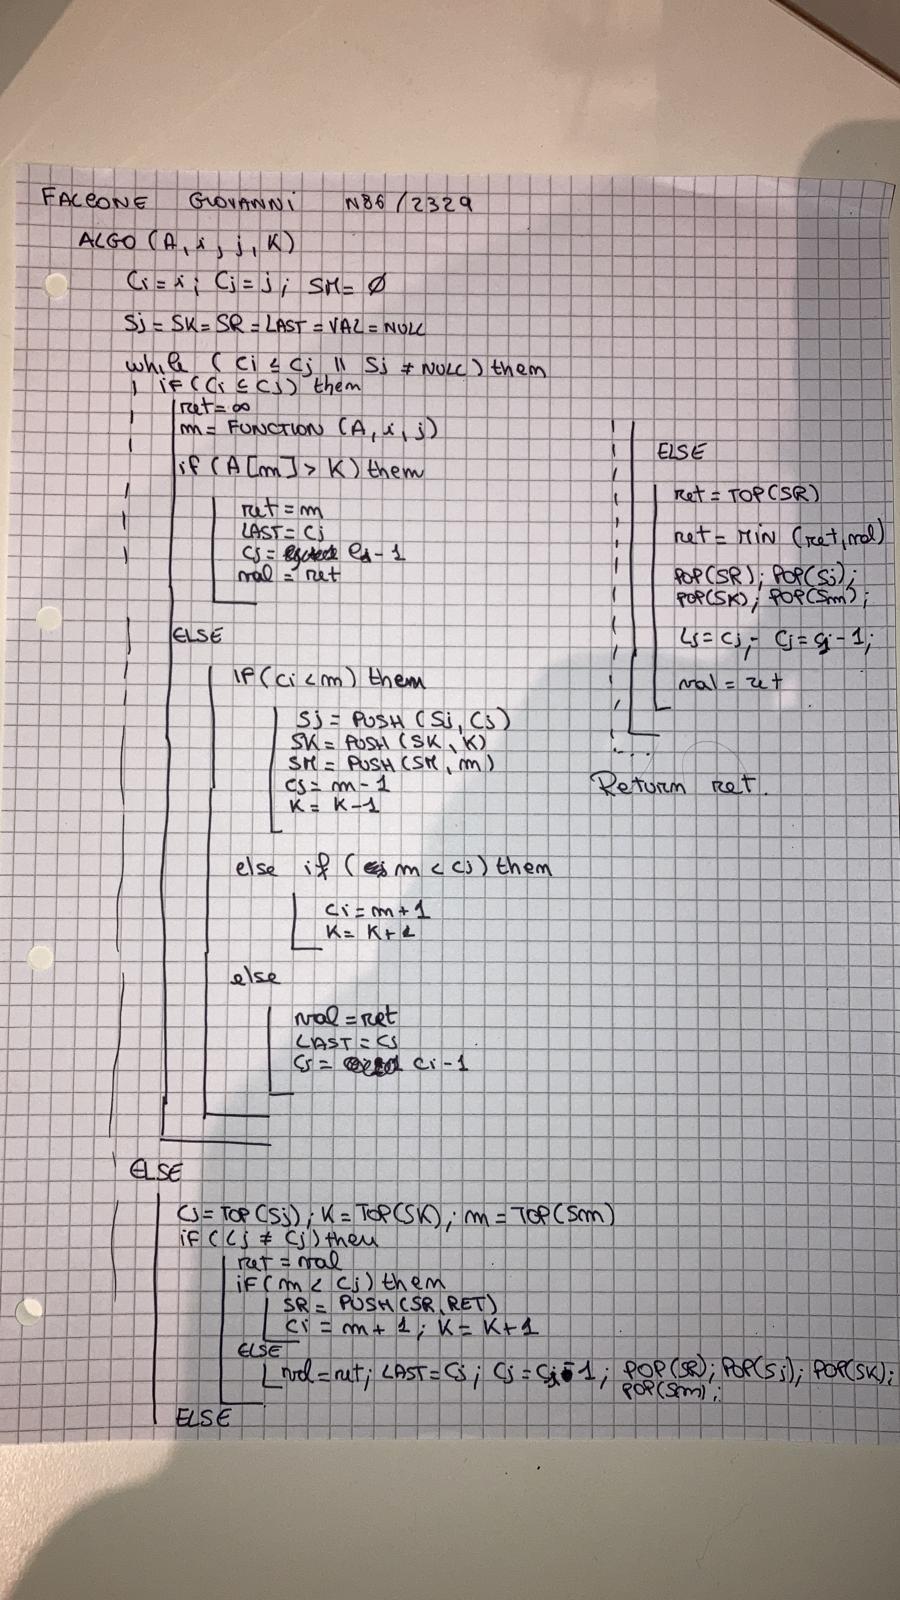 FALCONE GIOVANNI N86/2329
ALGO (A, i, j, K)
Ci = i; Cj = j; SM = Ø
Sj = SK = SR = LAST = VAL = NULL
while (Ci ≤ Cj || Sj ≠ NULL) them
if (Ci ≤ Cj) them
ret = ∞
m = FUNCTION (A, i, j)
if (A[m] > K) them
ret = m
LAST = Cj
Cj = Cj - 1
val = ret
ELSE
if (Ci < m) them
Sj = PUSH (Sj, Cj)
SK = PUSH (SK, K)
SM = PUSH (SM, m)
Cj = m - 1
K = K - 1
else if (m < Cj) them
Ci = m + 1
K = K + 1
else
val = ret
LAST = Cj
Cj = Ci - 1
ELSE
Cj = TOP(Sj); K = TOP(SK); m = TOP(Sm)
if (Lj ≠ Cj) then
ret = val
if (m < Cj) them
SR = PUSH (SR, RET)
Ci = m + 1; K = K + 1
ELSE
val = ret; LAST = Cj; Cj = Cj - 1; POP(SR); POP(Sj); POP(SK);
POP(Sm);
ELSE
ELSE
ret = TOP(SR)
ret = MIN (ret, val)
POP(SR); POP(Sj);
POP(SK); POP(Sm);
Lj = Cj; Cj = Cj - 1;
val = ret
Return ret.